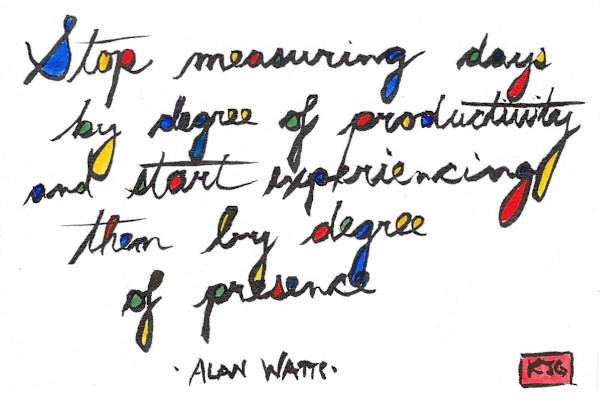 Stop measuring days
by degree of productivity
and start experiencing
them by degree
of presence
· ALAN WATTS ·
KJG